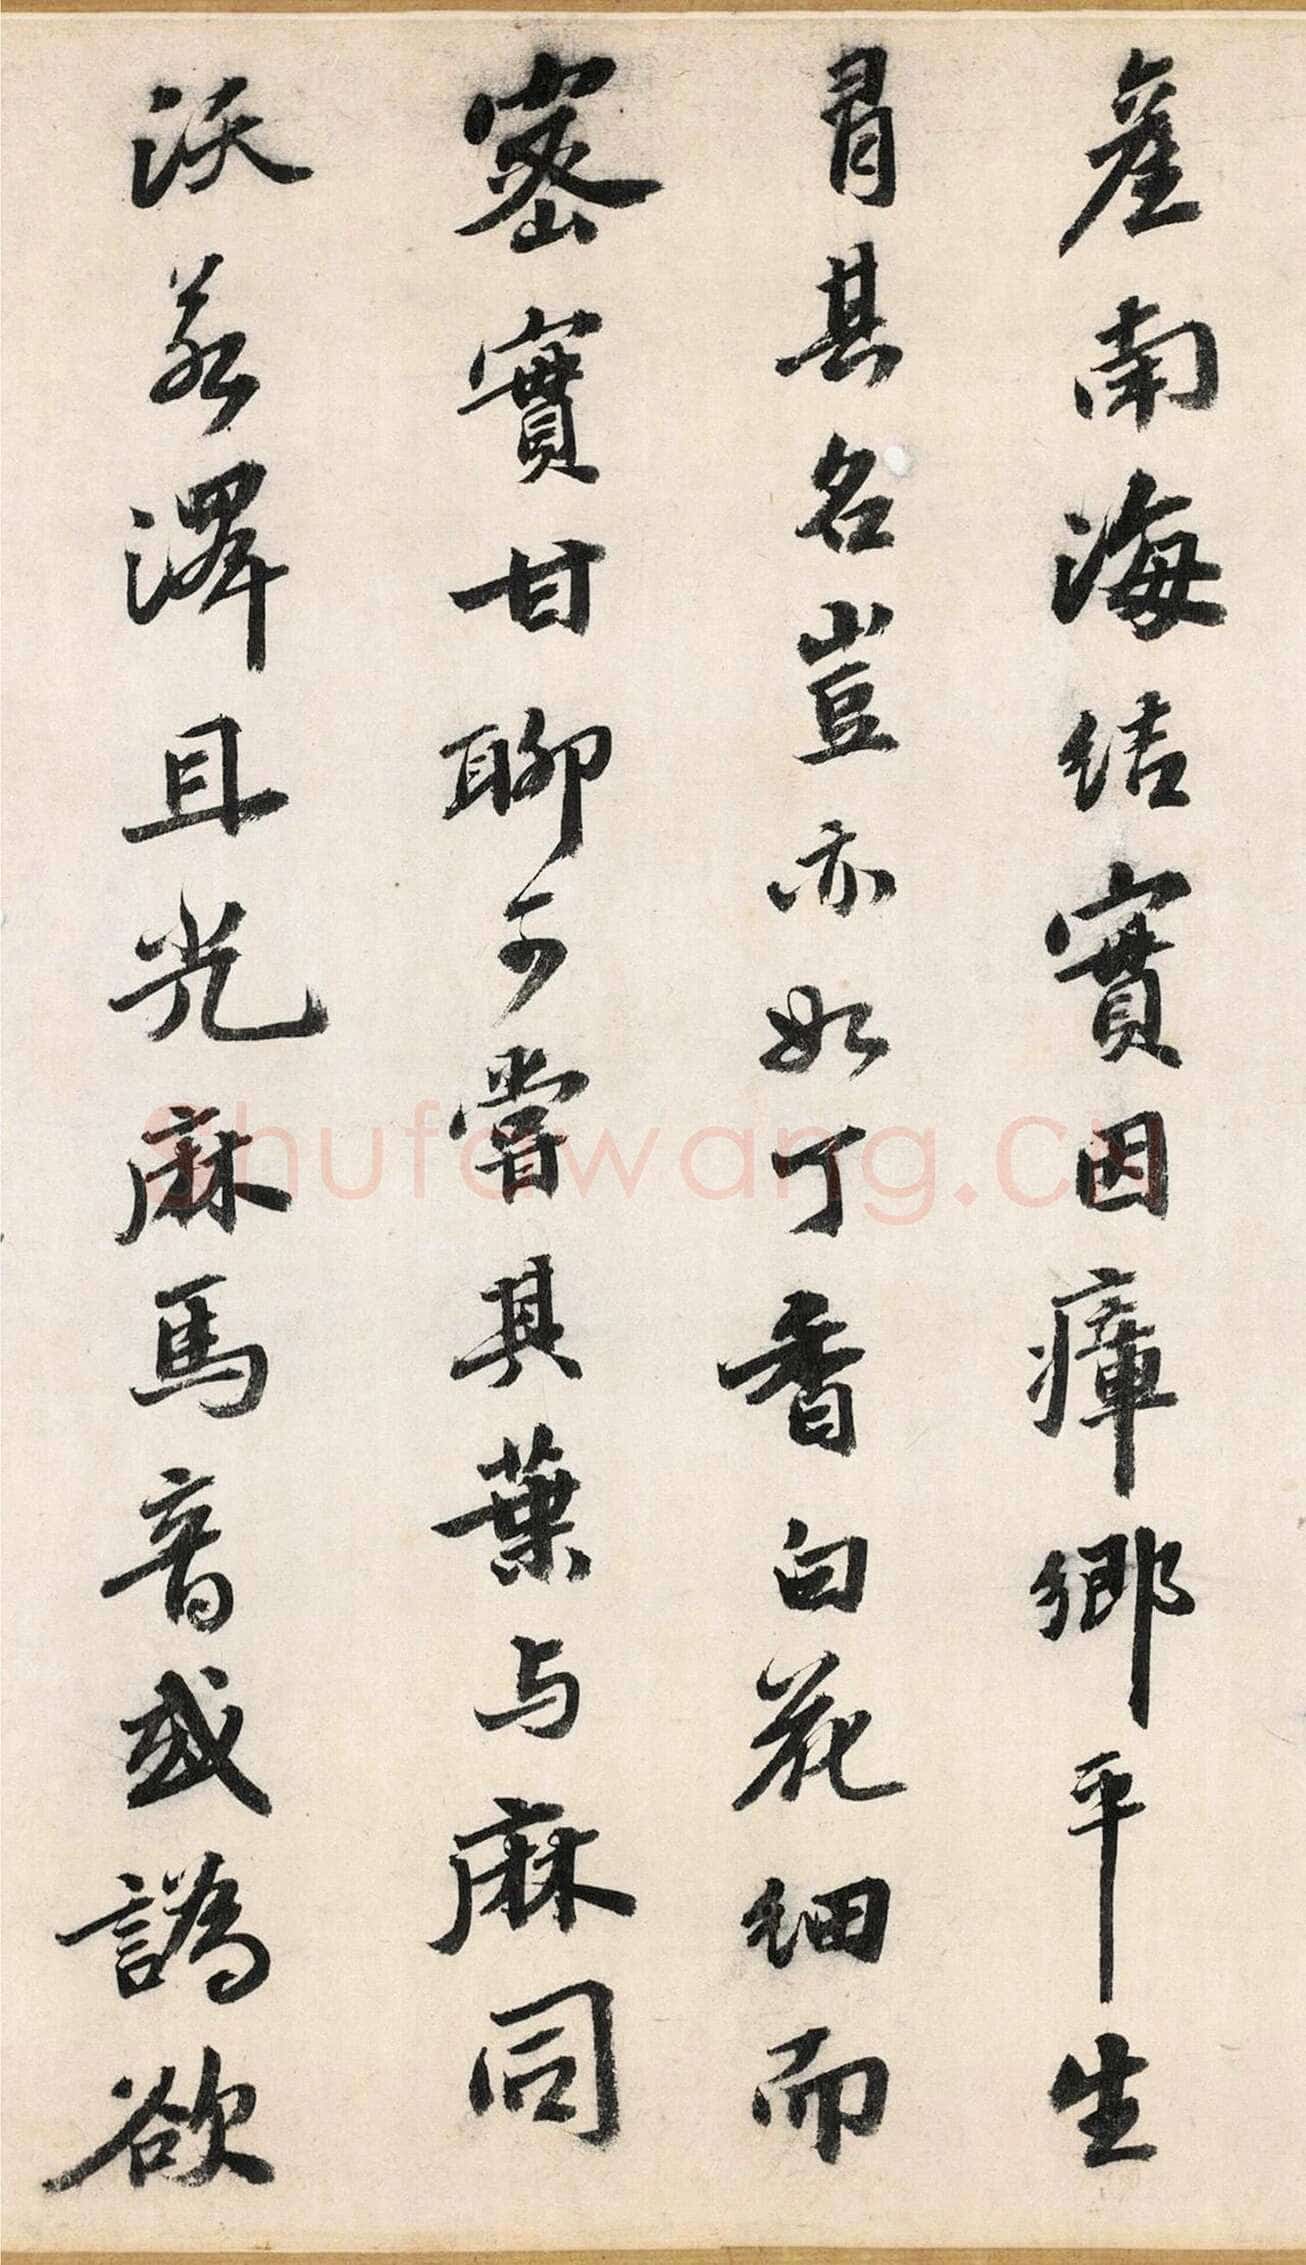 產南海結實因瘴鄉平生
冒其名豈亦如丁香白花細而
密實甘聊可嘗其葉与麻同
沃若澤且光麻馬音或譌欲
shufawang.cn